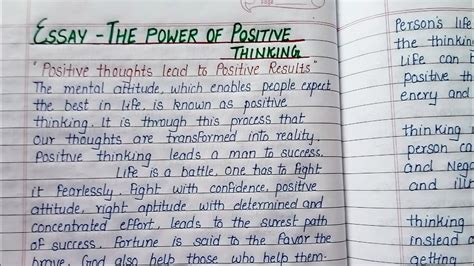 ESSAY - THE POWER OF POSITIVE
THINKING
"Positive thoughts lead to Positive Results"
The mental attitude, which enables people expect
the best in life, is known as positive
thinking. It is through this process that
our thoughts are transformed into reality.
Positive thinking leads a man to success.
Life is a battle, one has to fight
it fearlessly. Fight with confidence, positive
attitude, right aptitude with determined and
concentrated effort, leads to the surest path
of success. Fortune is said to the favor the
brave. God also help those who help them-
Person's life
the thinkin
Life can b
Positive th
enery and
thinking
person ca
and Nega
and ill
thinking
instead
other